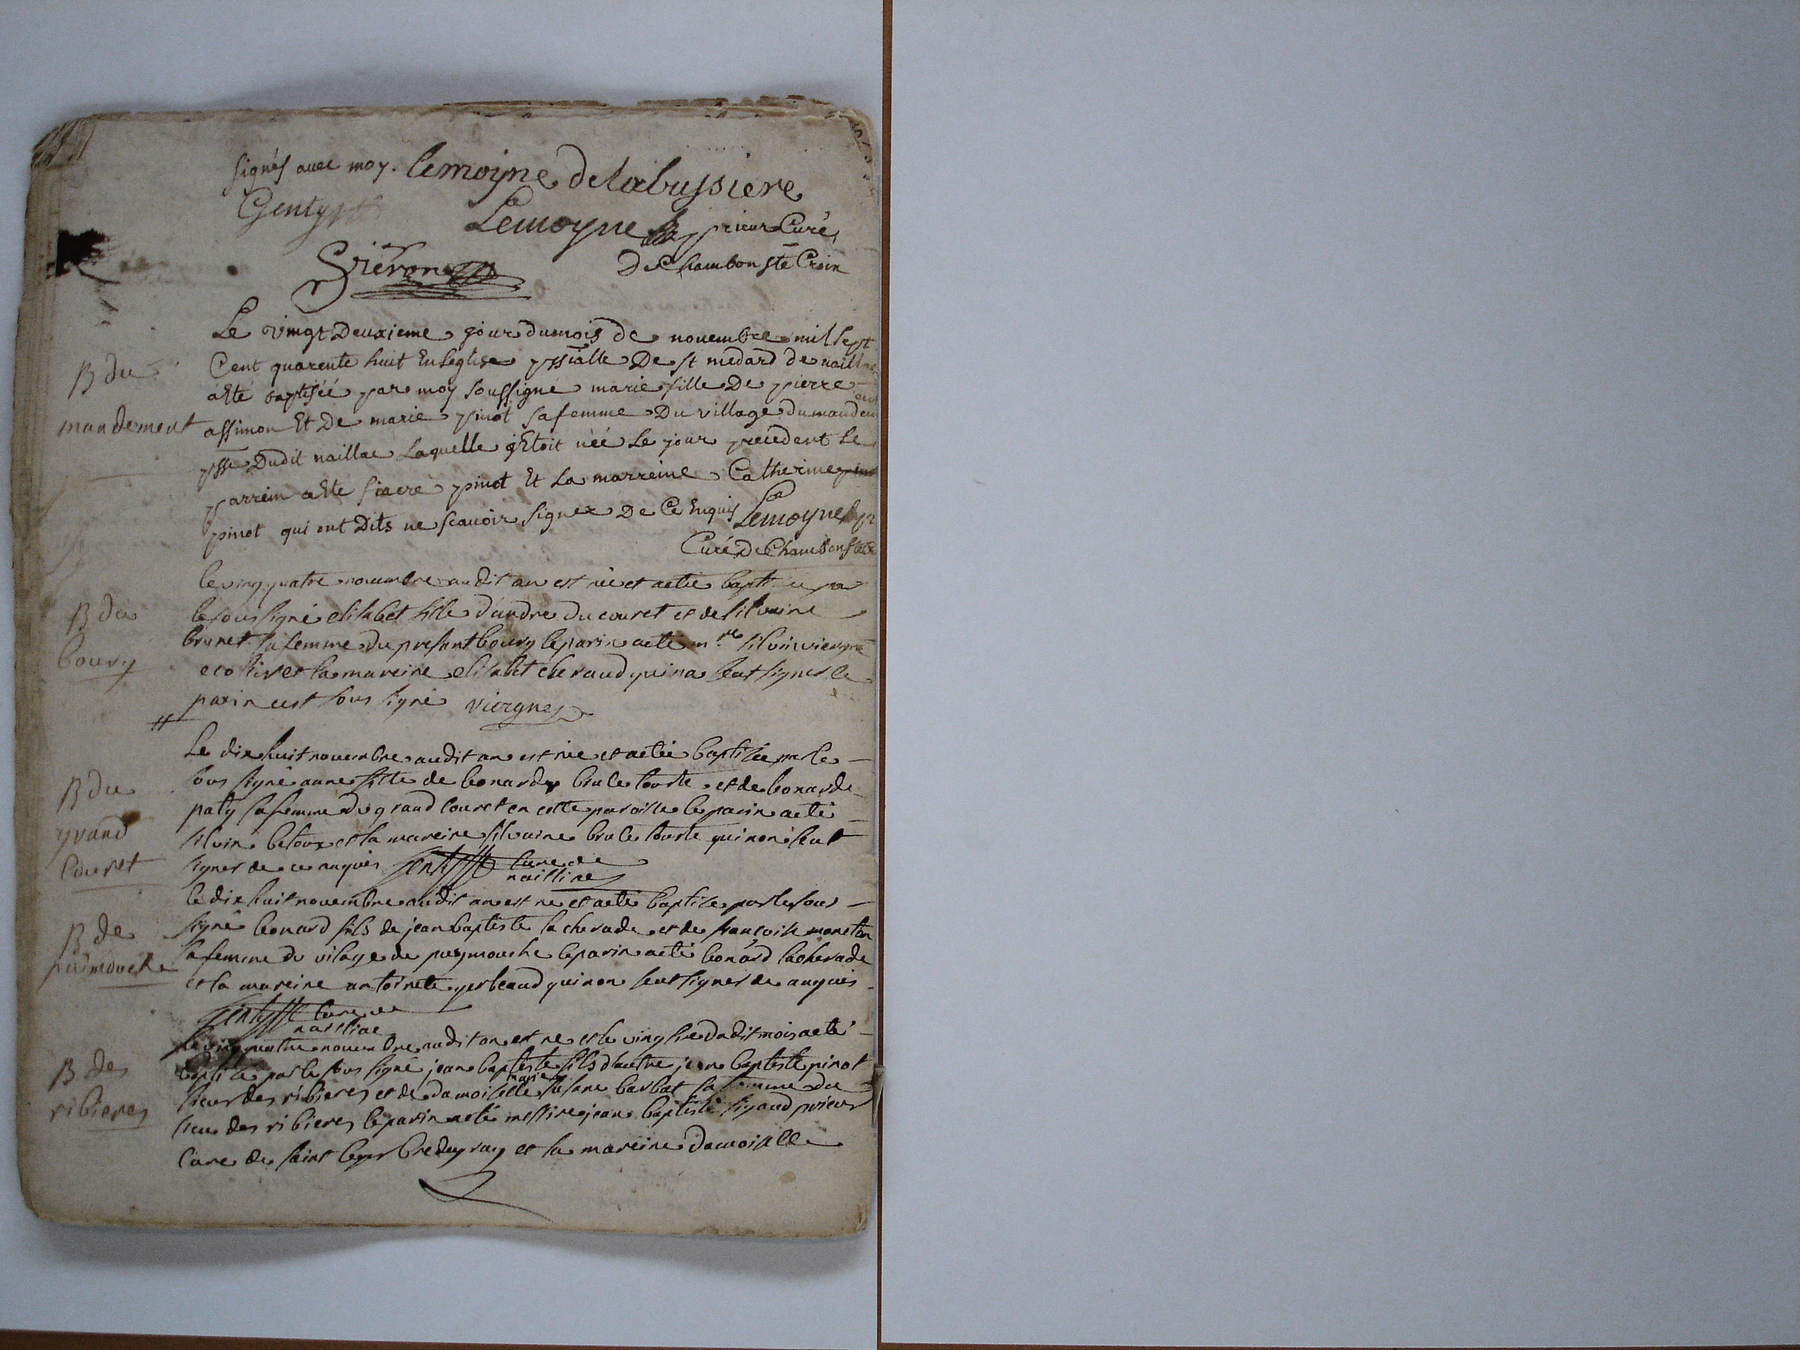 signés avec moy. Lemoyne Delabussiere
Genty
Lemoyne prieur Curé
De Chambon ste Croix
Siéron
Le vingt Deuxieme jour du mois de novembre mil sept
Cent quarente huit En Leglise De st medard de naillac
B du
a Eté baptisée par moy soussigne marie fille De pierre
mandement
assimon Et De marie pinot sa femme Du village du mandem
ent
psse Dudit naillac Laquelle Etoit née Le jour precedent Le
parrein a Ete fiacre pinot Et La marreine Catherine
pinot qui ont Dits ne scavoir signer De Ce Enquis Lemoyne pr
Curé De Chambon ste
le vingt quatre novembre audit an est née et a eté baptisée par
B du
le sous signé elisabet fille d'andre du couret et de silvaine
bourg
brunet sa femme du presant bourg le parin a eté silvin viergne
et la mareine elisabet qui na seut signer le
parin cest sous signé viergne
Le dix huit novembre audit an est née et a eté baptisée par le
B du
sous signé anne fille de leonard bruletourte et de leonarde
grand
paty sa femme du grand couret en cette paroisse le parin a eté
Couret
silvin et la mareine silvaine bruletourte qui non seut
signer de ce anquis Genty Curé de
naillac
le dix huit novembre audit an est ne et a eté baptisé par le sous
B de
signé leonard fils de jean baptiste lacherade et de françoise
puimouche
sa femme du vilage de puymouche le parin a eté leonard lacherade
et la mareine antoinete qui non seut signer de anquis
Genty Curé de
naillac
le vingt quatre novembre audit an est ne et le vingt sis dudit mois a eté
B des
baptisé par le sous signé jean baptiste fils d'autre jean baptiste pinot
ribieres
sieur des ribieres et de damoiselle marie susane barbat sa femme du
lieu des ribieres le parin a eté messire jean baptiste rigaud prieur
Curé de saint leger et la mareine damoiselle